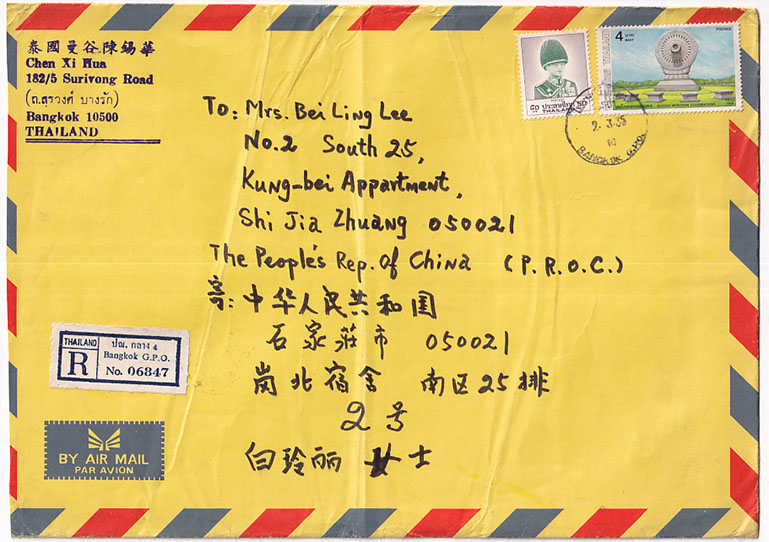 泰國曼谷陳錫華
Chen Xi Hua
182/5 Surivong Road
(ถ.สุรวงศ์ บางรัก)
Bangkok 10500
THAILAND
4
BAHT
POSTAGE
THAILAND
BANGKOK G.P.O.
To: Mrs. Bei Ling Lee
No.2 South 25,
Kung-bei Appartment,
Shi Jia Zhuang 050021
The People's Rep. of China (P.R.O.C.)
寄: 中华人民共和国
石家莊市 050021
岗北宿舍 南区25排
2号
白玲丽 女士
THAILAND
R
ปณ. กลาง 4
Bangkok G.P.O.
No. 06847
BY AIR MAIL
PAR AVION